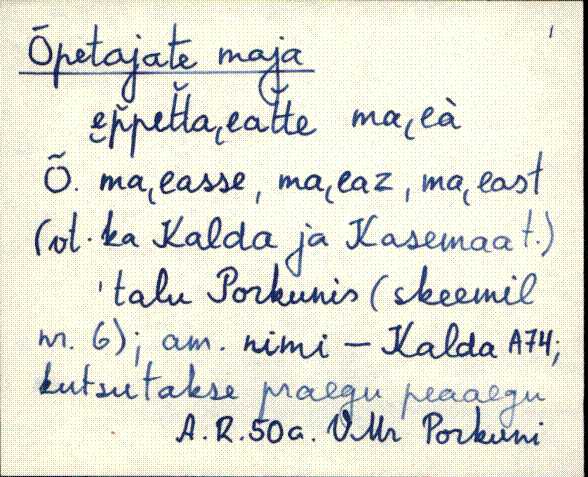 Õpetajate maja
e̮p̆pet̆t̆a,eat̆t̆e ma,eà
Õ. ma,easse, ma,eaz, ma,east
(vt. ka Kalda ja Kasemaa t.)
'talu Porkunis (skeemil
nr. 6); am. nimi – Kalda A74;
kutsutakse praegu peaaegu
A.R. 50a. VMr Porkuni